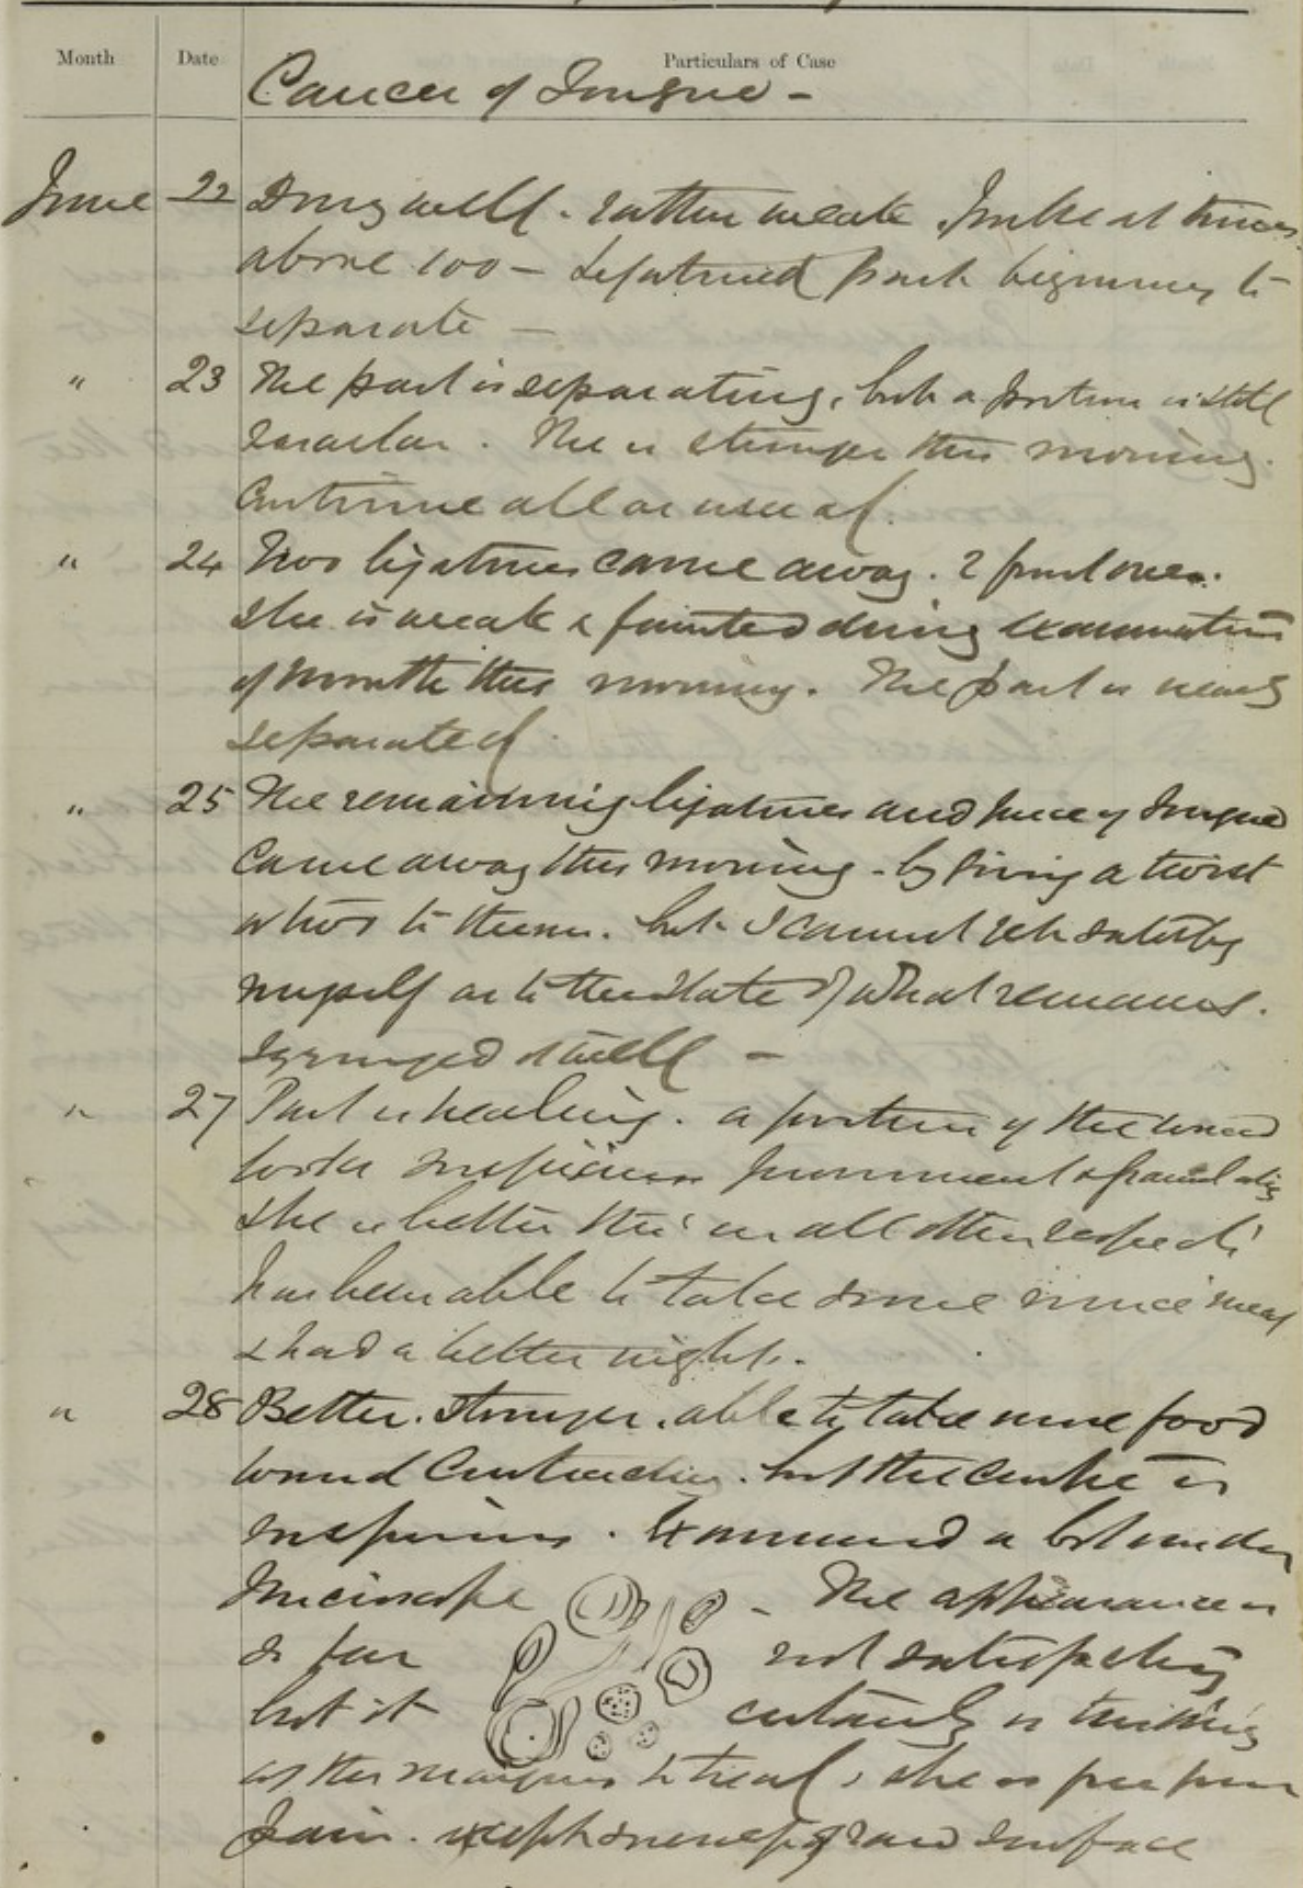 Month Date Particulars of Case
Cancer of Tongue -
June 22 Doing well. rather weak. Pulse at times
above 100 - Ligatured part beginning to
separate -
" 23 The part is separating, but a portion is still
. She is stronger this morning.
Continue all as usual.
" 24 Two ligatures came away. 2 ones.
She is weak & fainted during examination
of mouth this morning. The part is nearly
separated.
" 25 The remaining ligatures and piece of tongue
came away this morning - by giving a twist
to them. but I cannot yet satisfy
myself as to the state of what remains.
Syringed it well -
" 27 Part is healing. a portion of the wound
looks suspicious prominent &
She is better this in all other respects
has been able to take some mince meat
& had a better night.
" 28 Better. Stronger. able to take more food
wound contracting. but the centre is
suspicious. Examined a bit under
Microscope - The appearance is
so far not satisfactory
but it certainly is
as the margins to heal, she is free from
pain. except soreness of raw surface